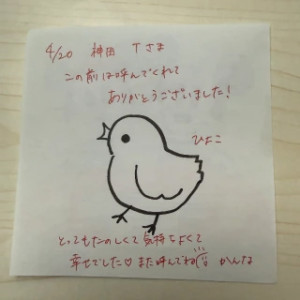 4/20 神田 Tさま
この前は呼んでくれて
ありがとうございました!
ひよこ
とってもたのしくて気持ちよくて
幸せでした♡また呼んでね かんな